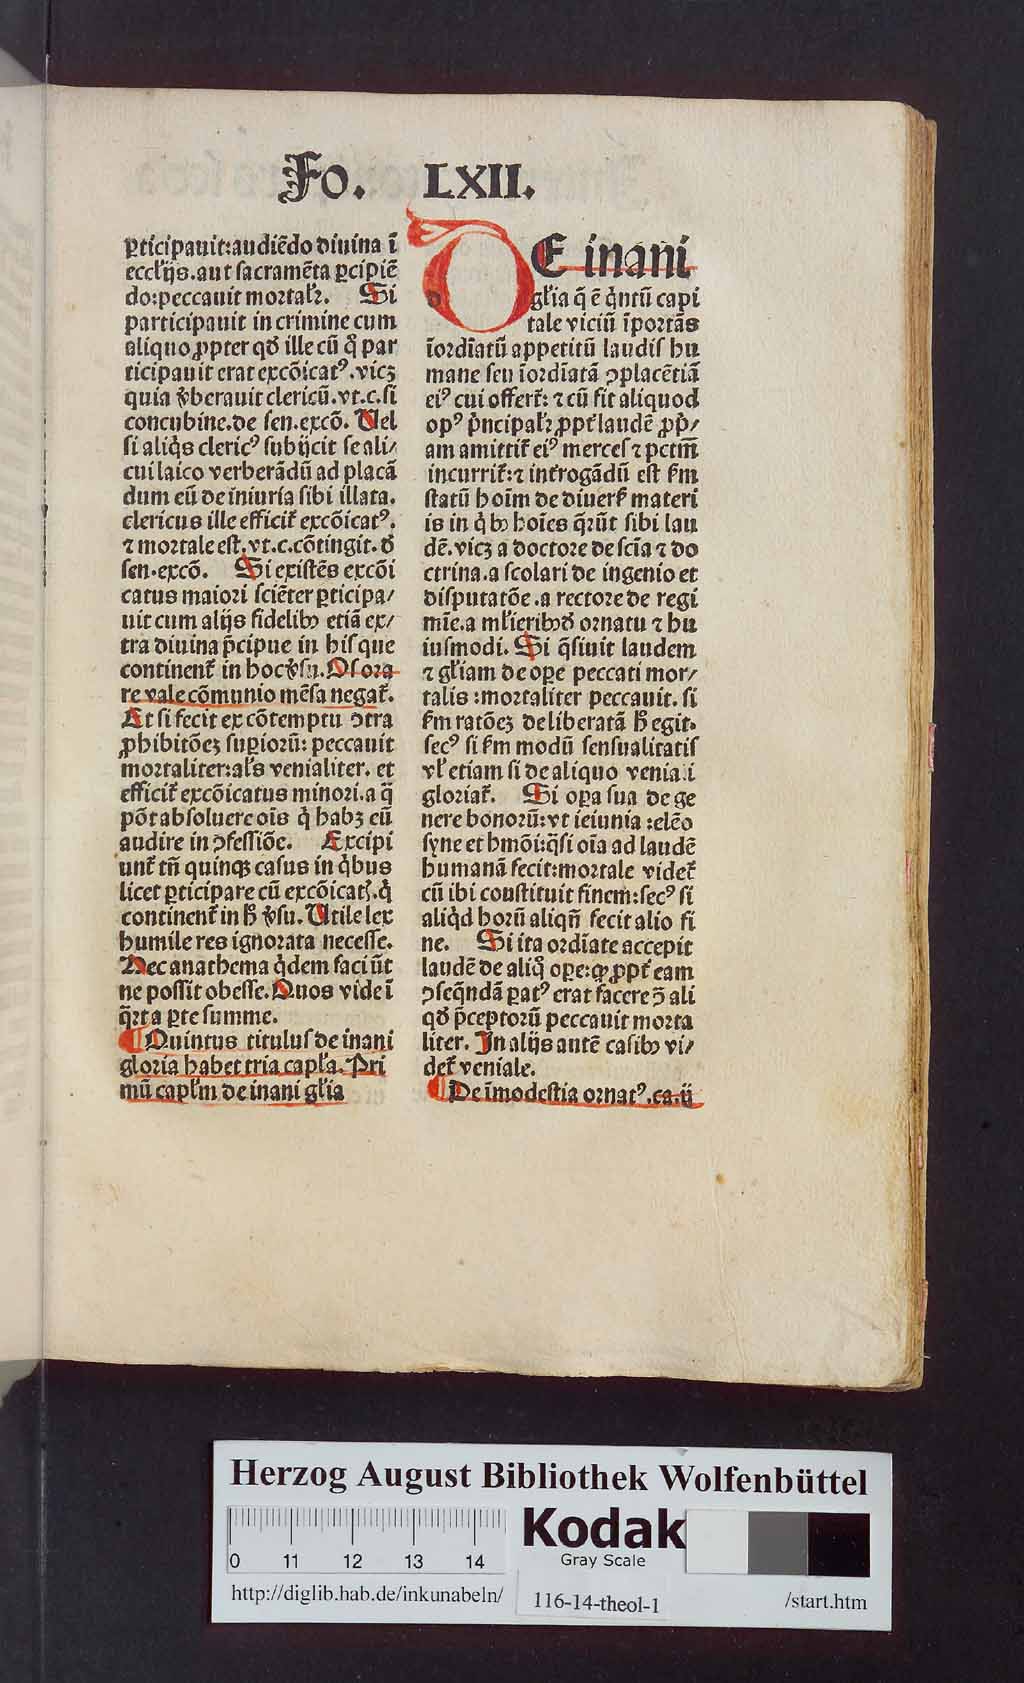 Fo. LXII.
ꝑticipauit:audiēdo diuina ī
eccl'ijs.aut sacramēta ꝑcipiē
do:peccauit mortalꝛ. Si
participauit in crimine cum
aliquo ꝓpter qđ ille cū q̊ par
ticipauit erat excōicatꝰ.vicꝫ
quia v̓berauit clericū.vt.c.si
concubine.de sen.excō. Vel
si aliq̓s clericꝰ subijcit se ali/
cui laico verberādū ad placā
dum eū de iniuria sibi illata.
clericus ille efficit̓ excōicatꝰ.
⁊ mortale est.vt.c.cōtingit.đ
sen.excō. Si existēs excōi
catus maiori sciēter ꝑticipa/
uit cum alijs fidelibꝫ etiā ex/
tra diuina p̄cipue in his que
continent̓ in hoc v̓su. Os ora
re vale cōmunio mēsa negat̓.
Et si fecit ex cōtemptu ↄtra
ꝓhibitōeꝫ supioꝝ: peccauit
mortaliter:al's venialiter. et
efficit̓ excōicatus minori.a q̄
pōt absoluere oīs q̓ habꝫ eū
audire in ↄfessiōe. Excipi
unt̓ tn̄ quinqꝫ casus in q̓bus
licet ꝑticipare cū excōicatꝭ.q̓
continent̓ in h̄ v̓su. Utile lex
humile res ignorata necesse.
Nec anathema q̓dem faci ūt
ne possit obesse. Quos vide ī
q̄rta ꝑte summe.
¶ Quintus titulus de inani
gloria habet tria capl'a. Pri
mū capl'm de inani gl'ia
DE inani
gl'ia q̄ ē q̓ntū capi
tale viciū īportās
īordīatū appetitū laudis hu
mane seu īordīatā ↄplacētiā
eiꝰ cui offert̓: ⁊ cū fit aliquod
opꝰ p̓ncipalꝛ ꝓpt̓ laudē ꝓp̓/
am amittit̓ eiꝰ merces ⁊ pctm̄
incurrit̓:⁊ int̓rogādū est ẜm
statū hoīm de diuerẜ materi
is in q̓bꝫ hoīes q̄rūt sibi lau
dē.vicꝫ a doctore de scīa ⁊ do
ctrina.a scolari de ingenio et
disputatōe.a rectore de regi
mīe.a ml'ieribꝫ đ ornatu ⁊ hu
iusmodi. Si q̄siuit laudem
⁊ gl'iam de oꝑe peccati mor/
talis:mortaliter peccauit. si
ẜm ratōeꝫ deliberatā h̄ egit.
secꝰ si ẜm modū sensualitatis
vl' etiam si de aliquo venia i
gloriat̓. Si oꝑa sua de ge
nere bonoꝝ:vt ieiunia:elēo
syne et hmōi:q̄si oīa ad laudē
humanā fecit:mortale videt̓
cū ibi coustituit finem:secꝰ si
aliq̓d hoꝝ aliqn̄ fecit alio fi
ne. Si ita ordīate accepit
laudē de aliq̊ oꝑe:ꝙ ꝓpt̓ eam
ↄseq̄ndā ꝑatꝰ erat facere ↄ̄ ali
qđ p̄ceptoꝝ peccauit morta
liter. In alijs autē casibꝫ vi/
det̓ veniale.
¶ De īmodestia ornatꝰ.ca.ij
Herzog August Bibliothek Wolfenbüttel
Kodak
Gray Scale
0 11 12 13 14
http://diglib.hab.de/inkunabeln/ 116-14-theol-1 /start.htm